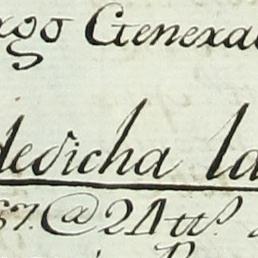 rgo General
dedicha la
57. @ 24 tt.s